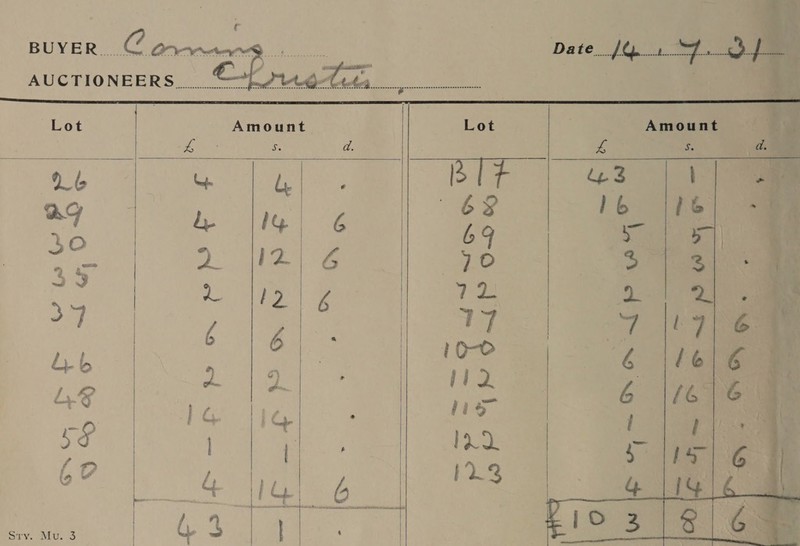 BUYER Comins Date 14.7.31
AUCTIONEERS Christies
Lot Amount Lot Amount
£ s. d. £ s. d.
26 4 4 . B/F 43 1 .
29 4 14 6 68 16 16 .
30 2 12 6 69 5 5
35 2 12 6 70 3 3 .
37 6 6 . 72 2 2 .
46 2 2 . 77 7 17 6
48 14 14 . 100 6 16 6
58 1 1 . 112 6 16 6
60 4 14 6 115 1 1 .
122 5 15 6
123 4 14 6
43 1 . £103 8 6
Sty. Mu. 3